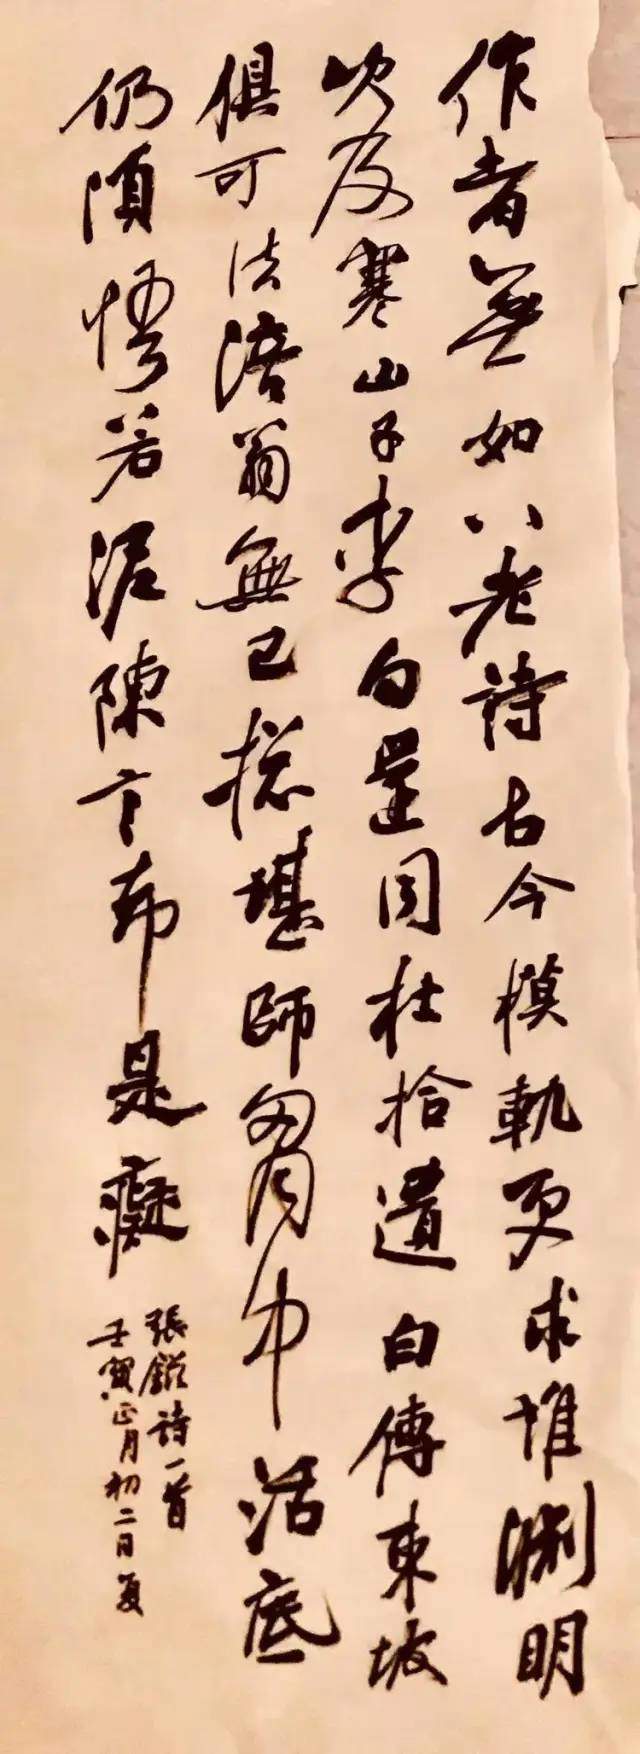 作者無如八老詩古今模軌更求誰淵明
次及寒山子李白還同杜拾遺白傅東坡
俱可法涪翁無已總堪師胸中活底
仍須悟若泥陳言却是癡
張鎡詩一首
壬寅正月初二日